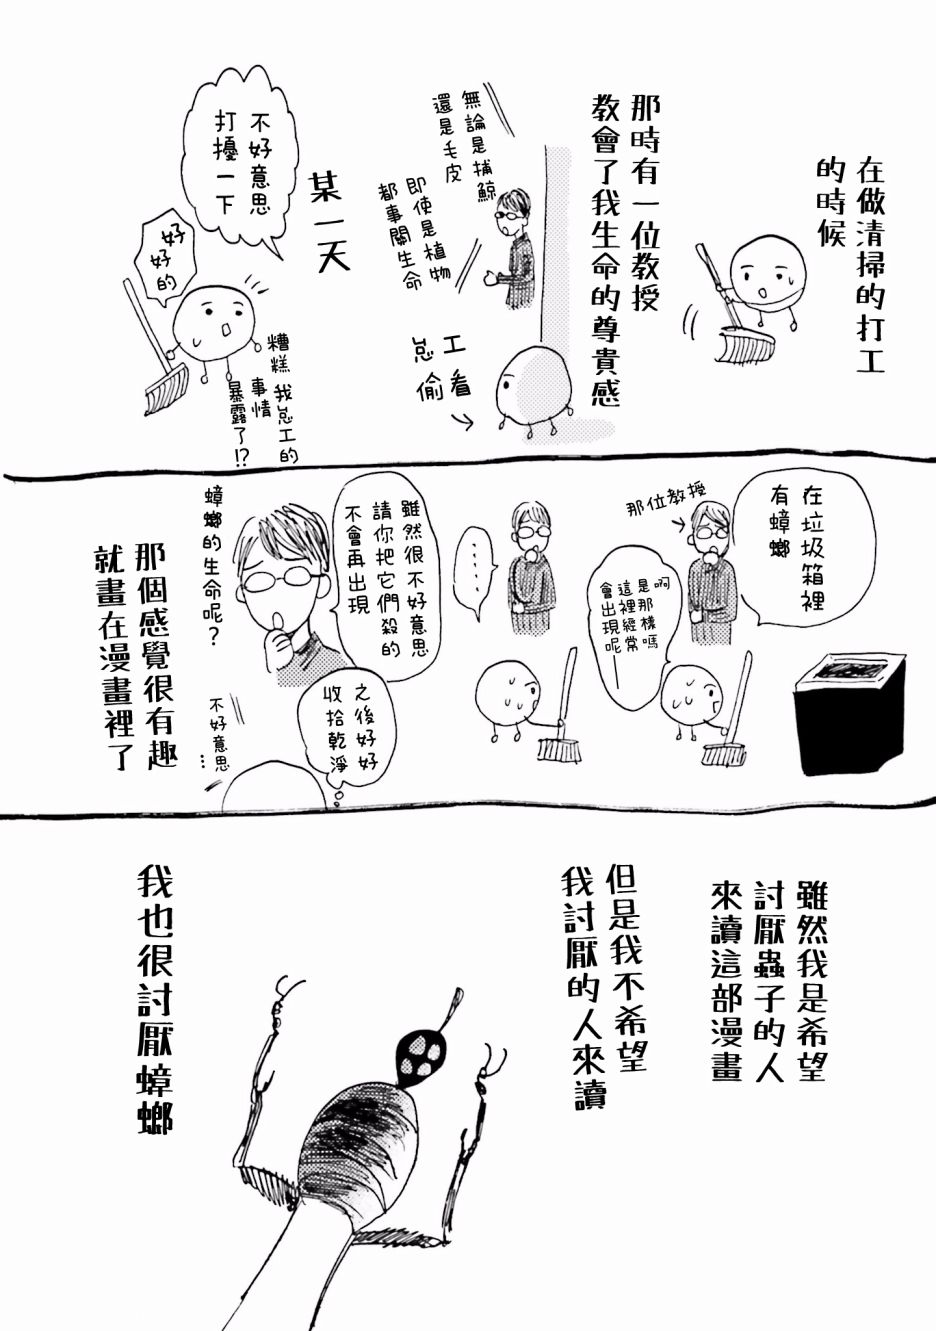 在做清掃的打工
的時候
那時有一位教授
教會了我生命的尊貴感
無論是捕鯨
還是毛皮
即使是植物
都事關生命
怠工
偷看
某一天
不好意思
打擾一下
好
好的
糟糕
我怠工的
事情
暴露了!?
在垃圾箱裡
有蟑螂
那位教授
啊
是那樣嗎
這裡經常
會出現呢—
......
雖然很不好意思
請你把它們殺的
不會再出現
之後好好
收拾乾淨
蟑螂的生命呢?
不好意思...
那個感覺很有趣
就畫在漫畫裡了
雖然我是希望
討厭蟲子的人
來讀這部漫畫
但是我不希望
我討厭的人來讀
我也很討厭蟑螂